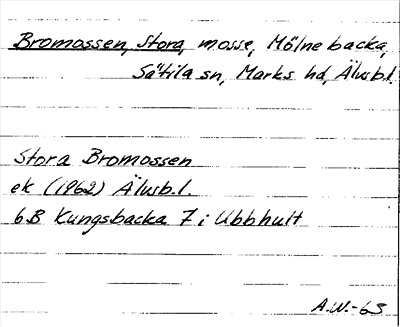 Bromossen, Stora, mosse, Mölnebacka,
Sätila sn, Marks hd, Älvsb.l.
Stora Bromossen
ek (1962) Älvsb.l.
6B Kungsbacka 7i Ubbhult
A.W.-63